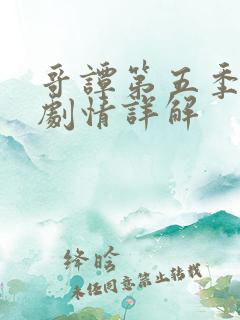 哥譚第五季
劇情詳解
绛晗
未经同意禁止转载